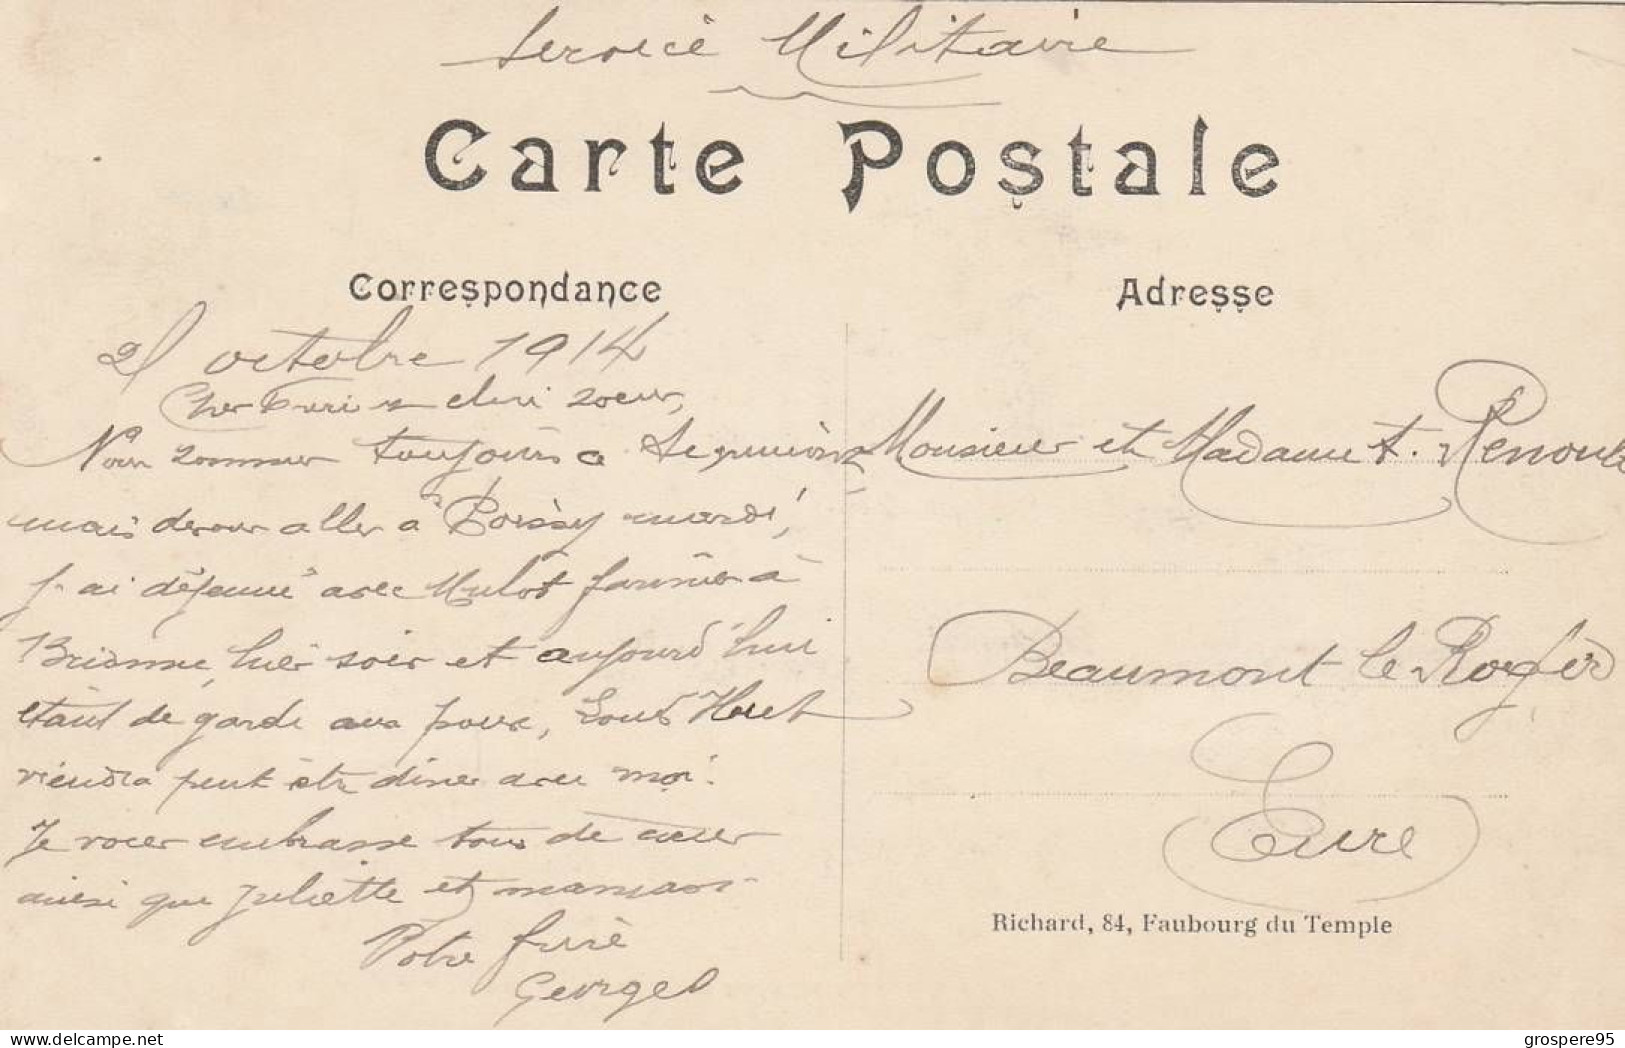 Service Militaire
Carte Postale
Correspondance
Adresse
21 octobre 1914
Cher frère et chère soeur,
Nous sommes toujours a
mais devons aller à Poissy mardi,
J'ai déjeuné avec Mulot fermier à
Brionne, hier soir et aujourd'hui
étant de garde aux
viendra peut être diner avec moi.
Je vous embrasse tous de cœur
ainsi que Juliette et maman
Votre frère
Georges
Monsieur et Madame A. Renoult
Beaumont le Roger
Eure
Richard, 84, Faubourg du Temple
grospere95